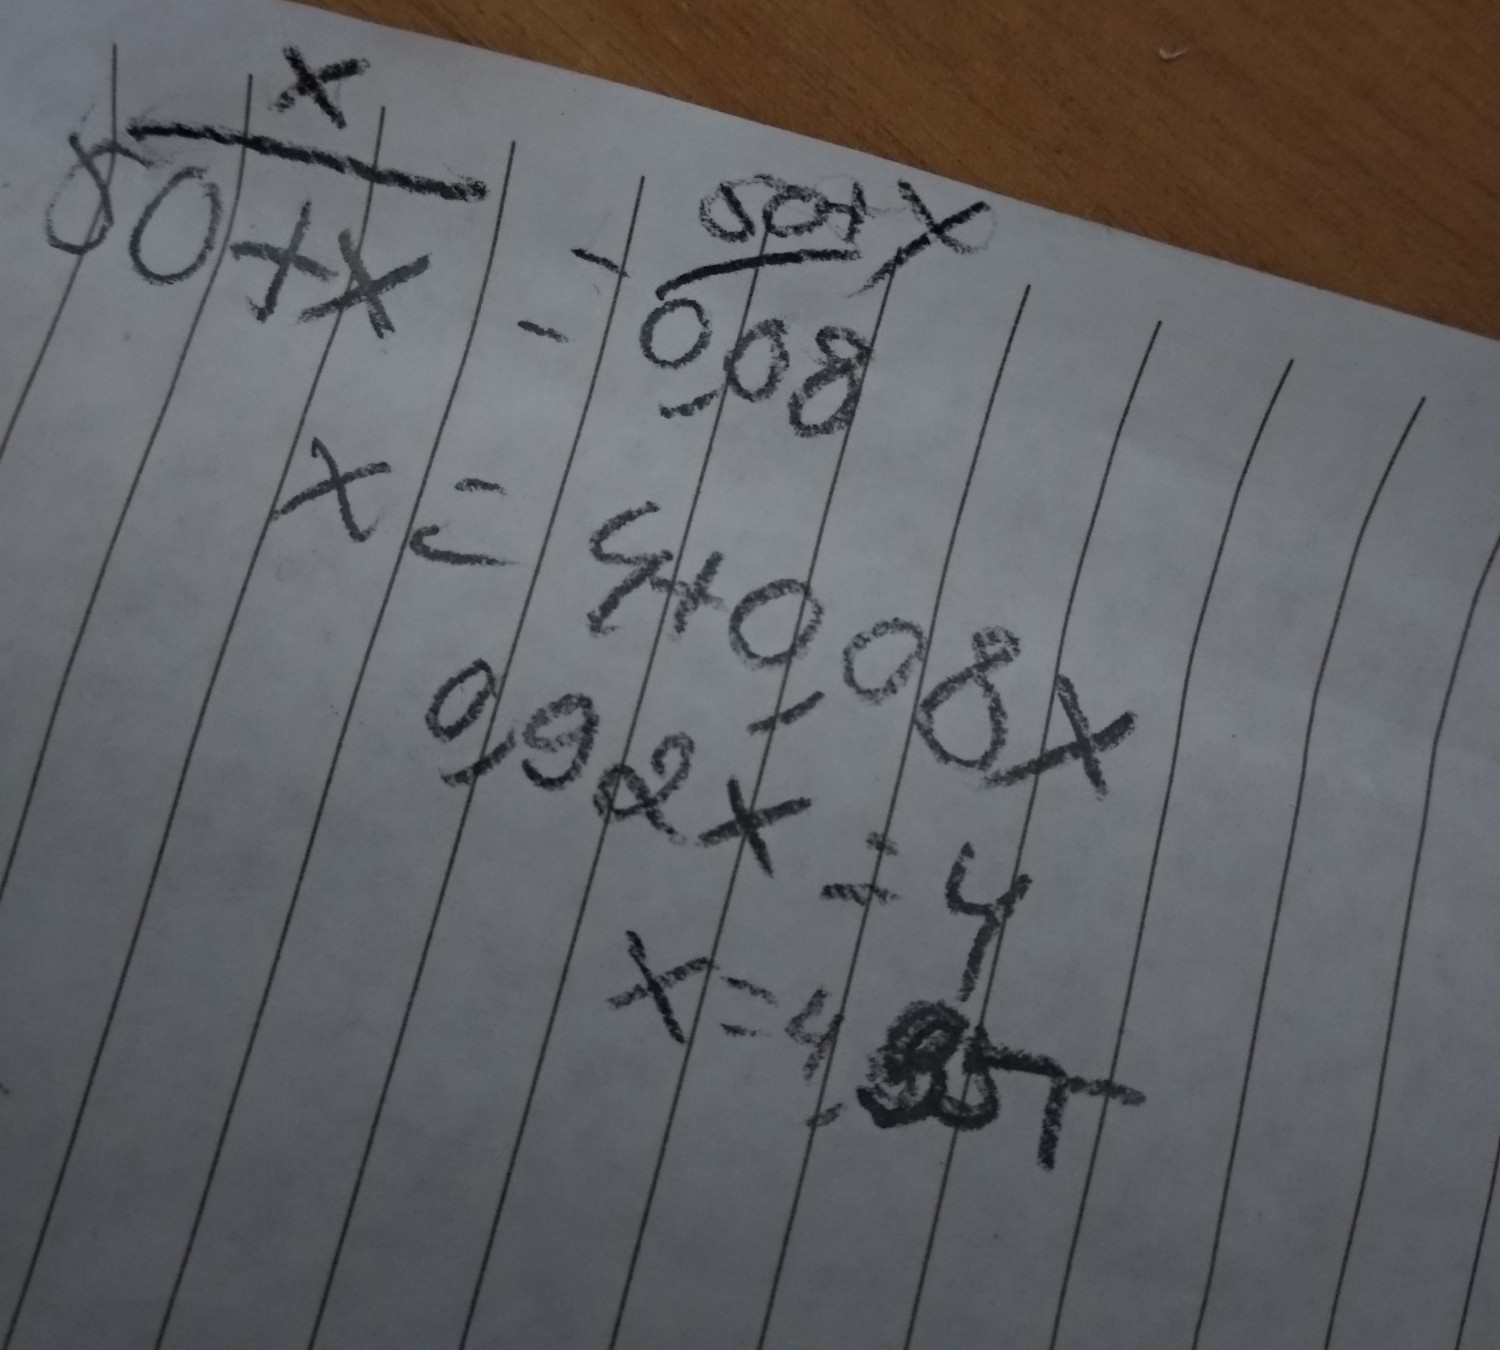 x
50+x = 50+x
0,08
x = 4+0,08x
0,92x = 4
x = 4,35